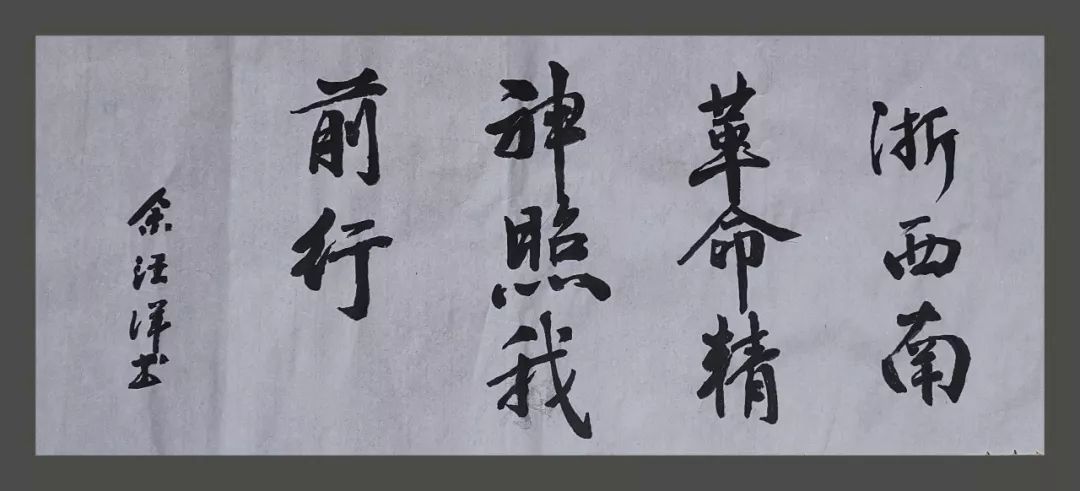 浙西南
革命精
神照我
前行
余汪洋书